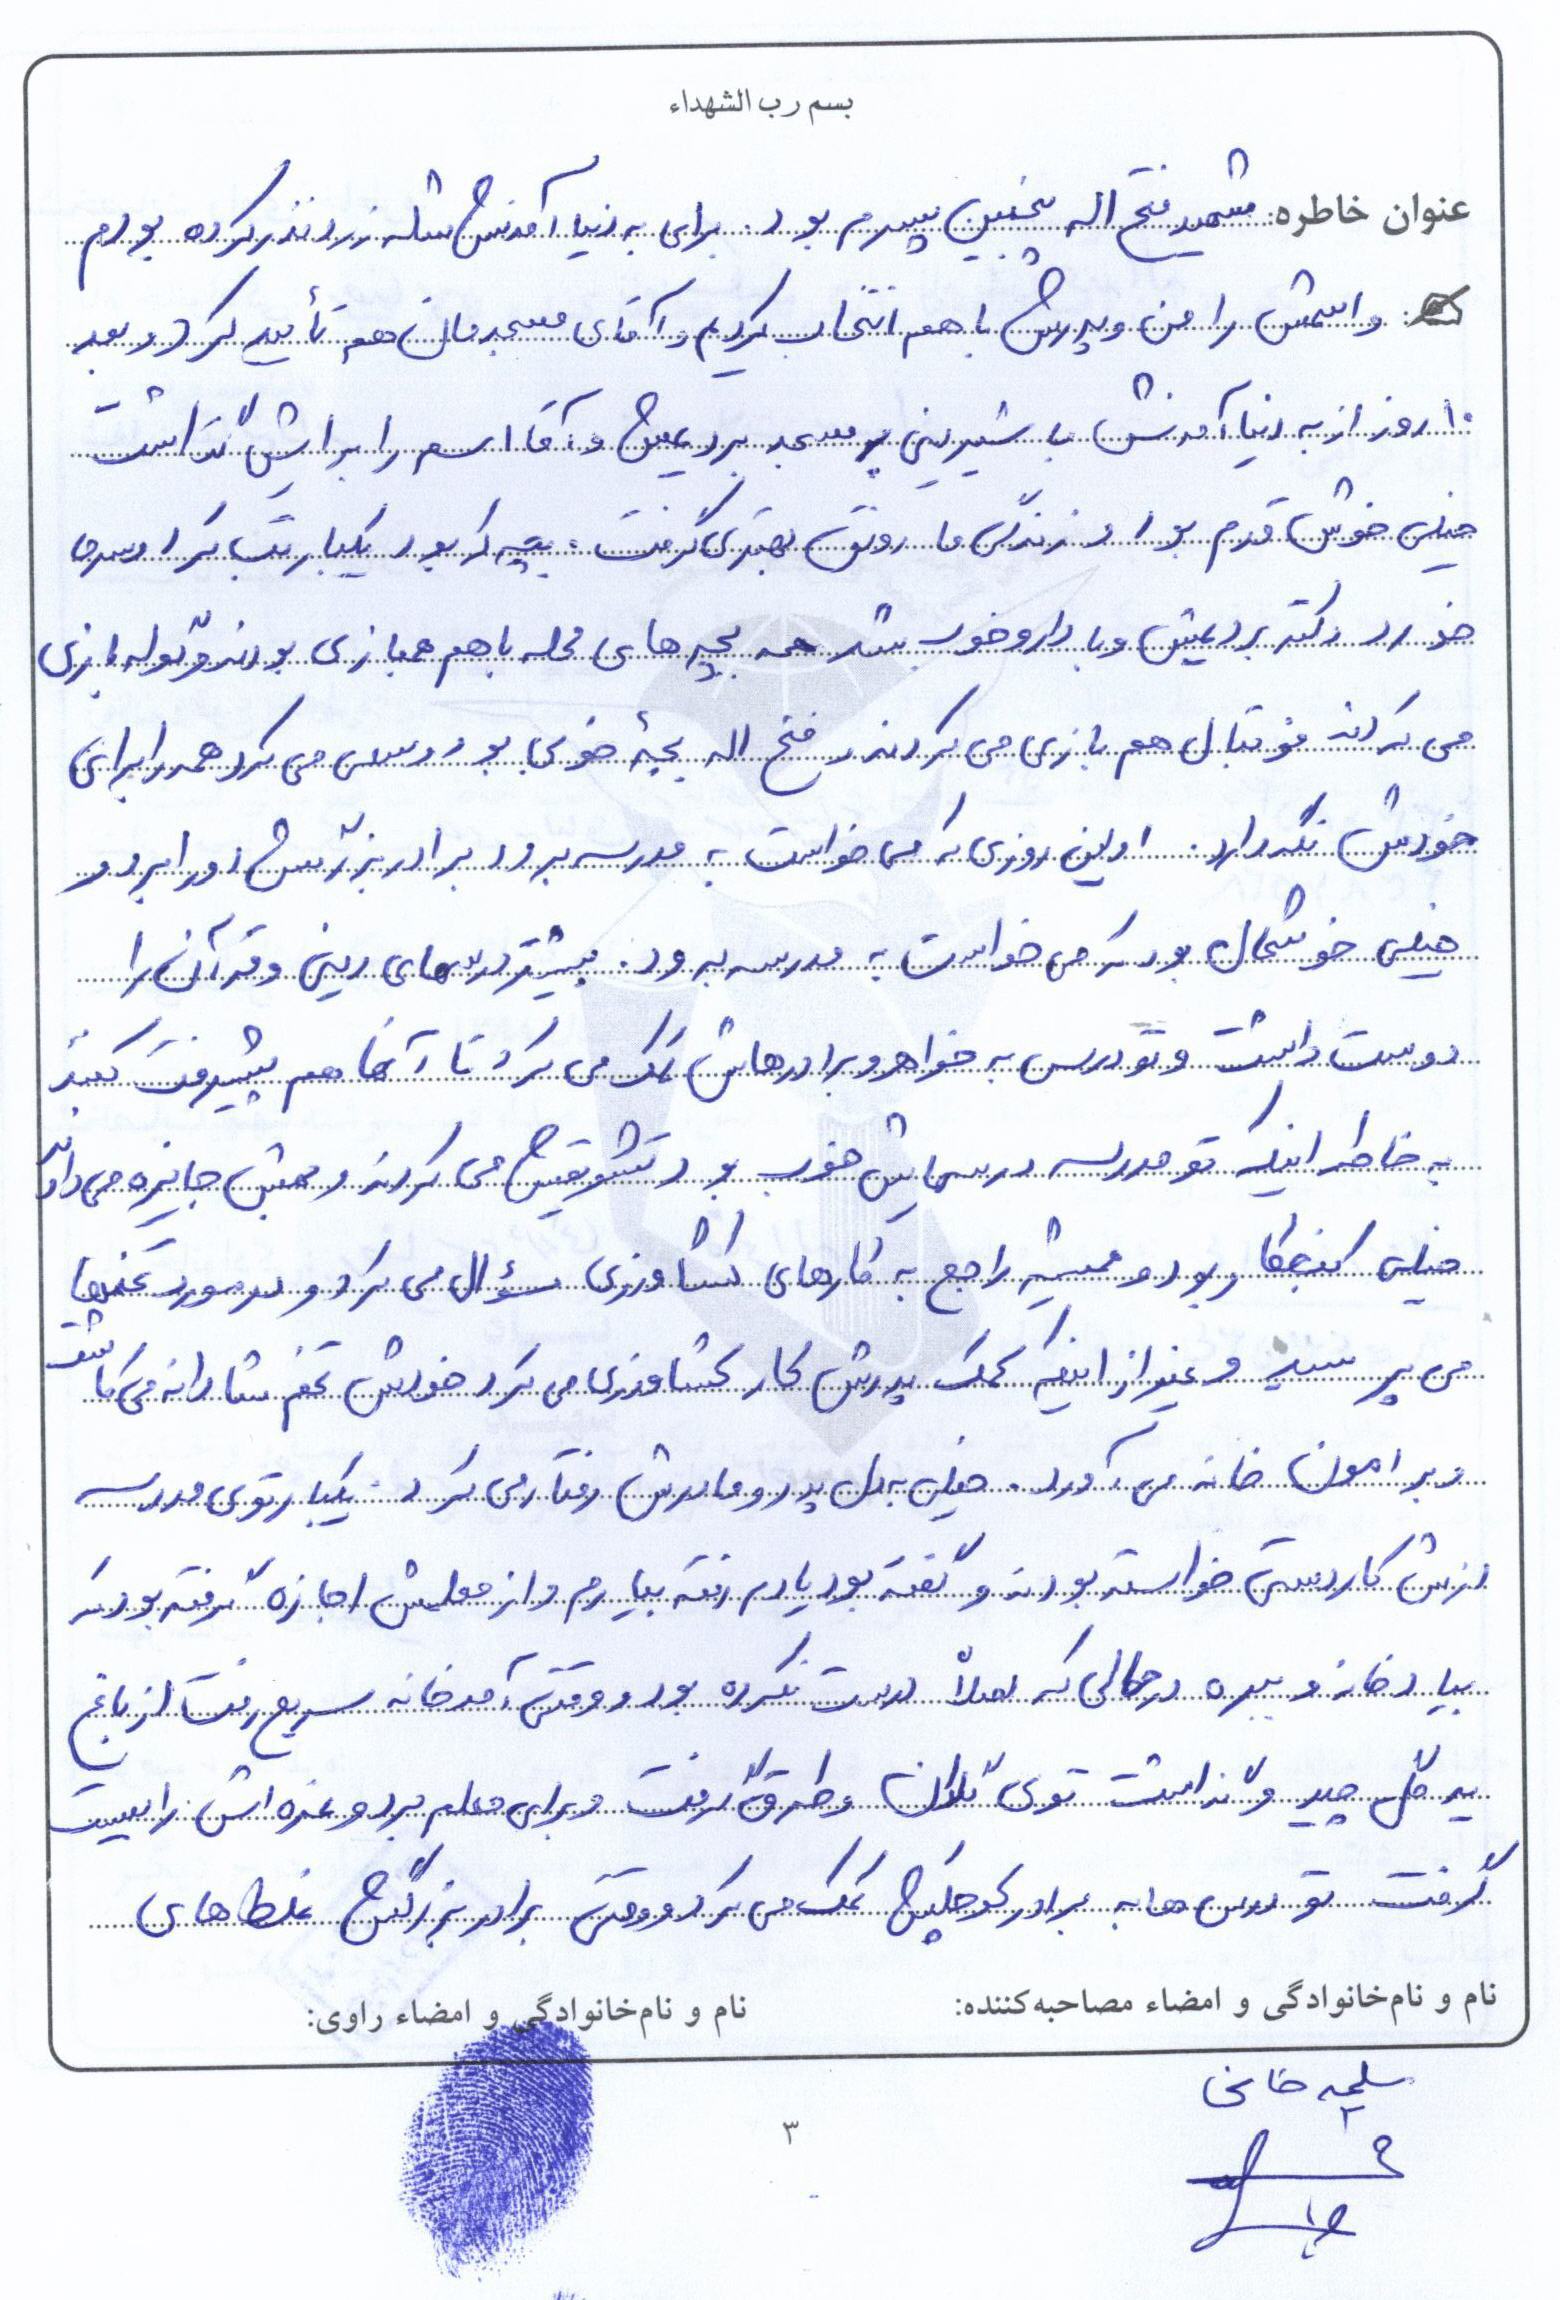 بسم رب الشهداء
عنوان خاطره: شهید فتح اله پنجمین پسرم بود. برای به دنیا آمدنش شله زرد نذر کرده بودم
و اسمش را من و پدرش با هم انتخاب کردیم و آقای مسجدمان هم تأیید کرد و بعد
۱۰ روز از به دنیا آمدنش با شیرینی به مسجد بردیمش و آقا اسم را برایش گذاشت
خیلی خوش قدم بود و زندگی ما رونق بهتری گرفت. بچه که بود یکبار تب کرد و سرما
خورد دکتر بردیمش و با دارو خوب شد همه بچه های محله با هم همبازی بودند و توله بازی
می کردند فوتبال هم بازی می کردند و فتح اله بچۀ خوبی بود و سعی می کرد همه را برای
خودش نگه دارد. اولین روزی که می خواست به مدرسه برود برادر بزرگش او را برد و
خیلی خوشحال بود که می خواست به مدرسه برود. بیشتر درسهای دینی و قرآن را
دوست داشت و تو درس به خواهر و برادرهاش کمک می کرد تا آنها هم پیشرفت کنند
به خاطر اینکه تو مدرسه درسهایش خوب بود تشویقش می کردند و بهش جایزه می دادند
خیلی کنجکاو بود و همیشه راجع به کارهای کشاورزی سؤال می کرد و در مورد تخمها
می پرسید و غیر از اینکه کمک پدرش کار کشاورزی می کرد خودش تخم شادانه می کاشت
و برامون خانه می آورد. خیلی به دل پدر و مادرش رفتار می کرد. یکبار توی مدرسه
ازش کاردستی خواسته بودند و گفته بود یادم رفته بیارم و از معلمش اجازه گرفته بود که
بیاد خانه و ببره در حالی که اصلاً درست نکرده بود و وقتی آمد خانه سریع رفت از باغ
یه گل چید و گذاشت توی گلدان و طرق گرفت و برای معلم برد و نمره اش را بیست
گرفت تو درس ها به برادر کوچکیش کمک می کرد و وقتی برادر بزرگیش غلط های
نام و نام‌خانوادگی و امضاء مصاحبه‌کننده:
نام و نام‌خانوادگی و امضاء راوی:
سلیمه خانی
۳